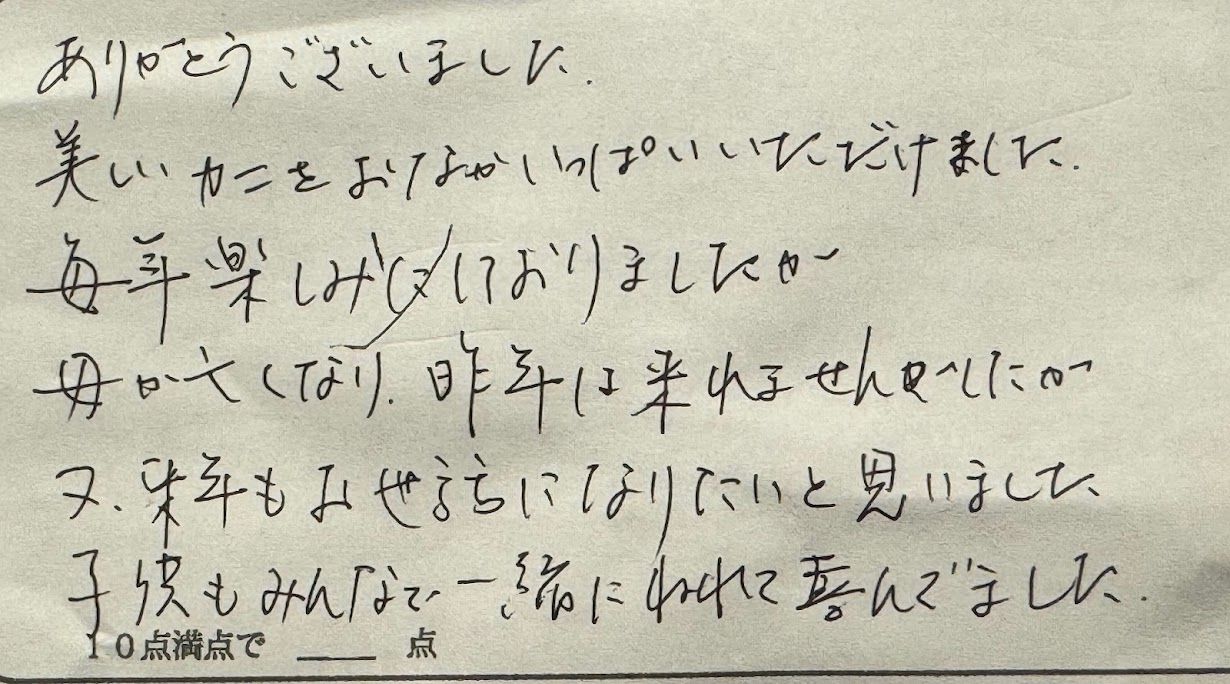 ありがとうございました.
美しいカニをおなかいっぱいいただけました.
毎年楽しみにしておりましたが
母が亡くなり、昨年は来れませんでしたが
又、来年もお世話になりたいと思いました
子供もみんなで一緒にねれて喜んでました.
10点満点で 点